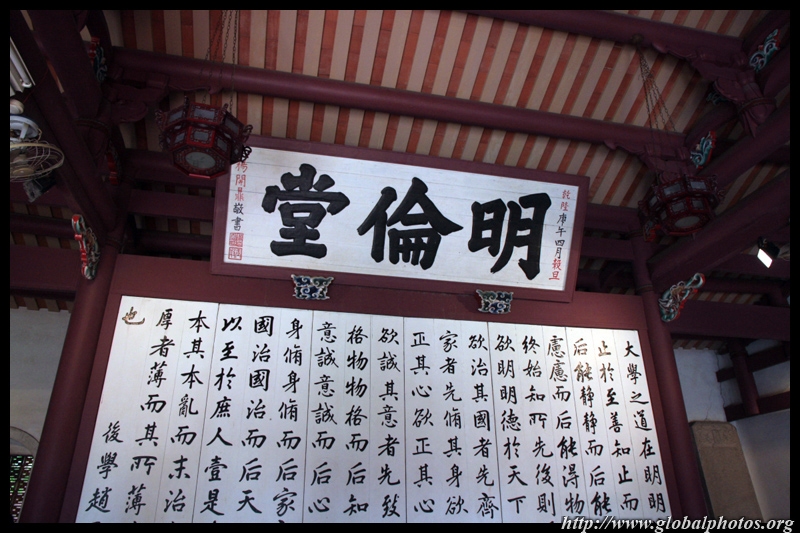 乾隆庚午四月穀旦
明倫堂
楊開鼎敬書
大學之道在明明
止於至善知止而
后能靜靜而后能
慮慮而后能得物
終始知所先後則
欲明明德於天下
欲治其國者先齊
家者先脩其身欲
正其心欲正其心
欲誠其意者先致
格物物格而后知
意誠意誠而后心
身脩身脩而后家
國治國治而后天
以至於庶人壹是
本其本亂而末治
厚者薄而其所薄
也
後學趙
http://www.globalphotos.org